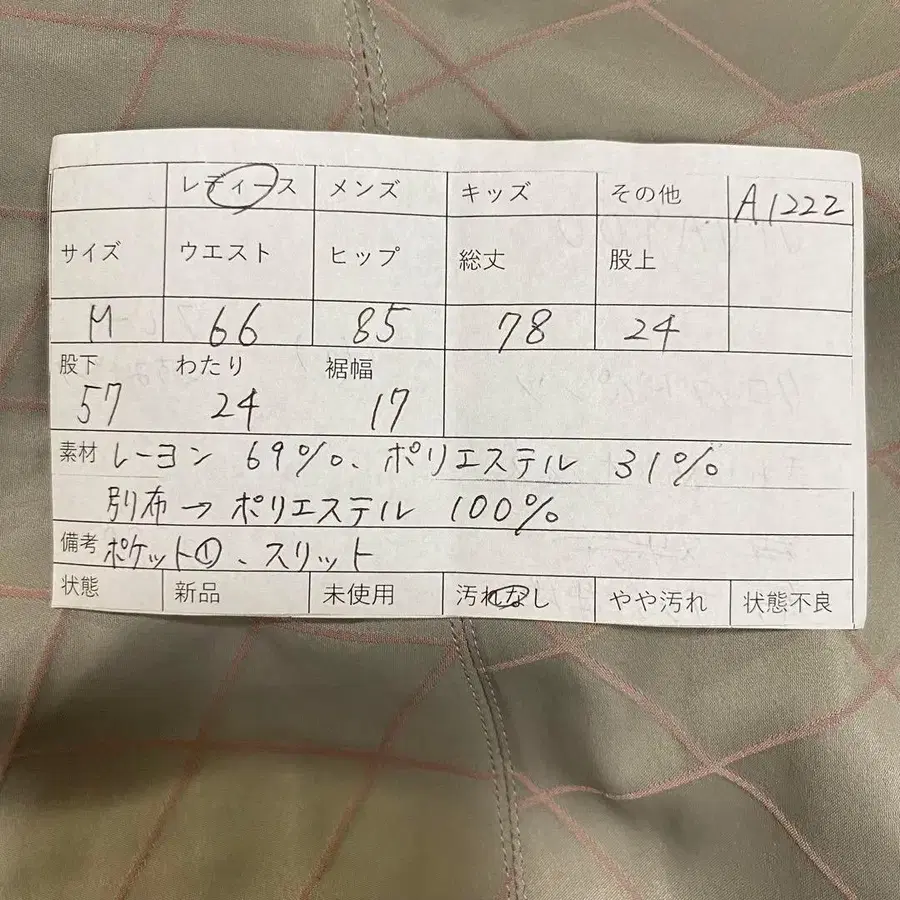 レディース メンズ キッズ その他 A1222
サイズ ウエスト ヒップ 総丈 股上
M 66 85 78 24
股下 わたり 裾幅
57 24 17
素材 レーヨン 69%、ポリエステル 31%
別布→ポリエステル 100%
備考 ポケット①、スリット
状態 新品 未使用 汚れなし やや汚れ 状態不良